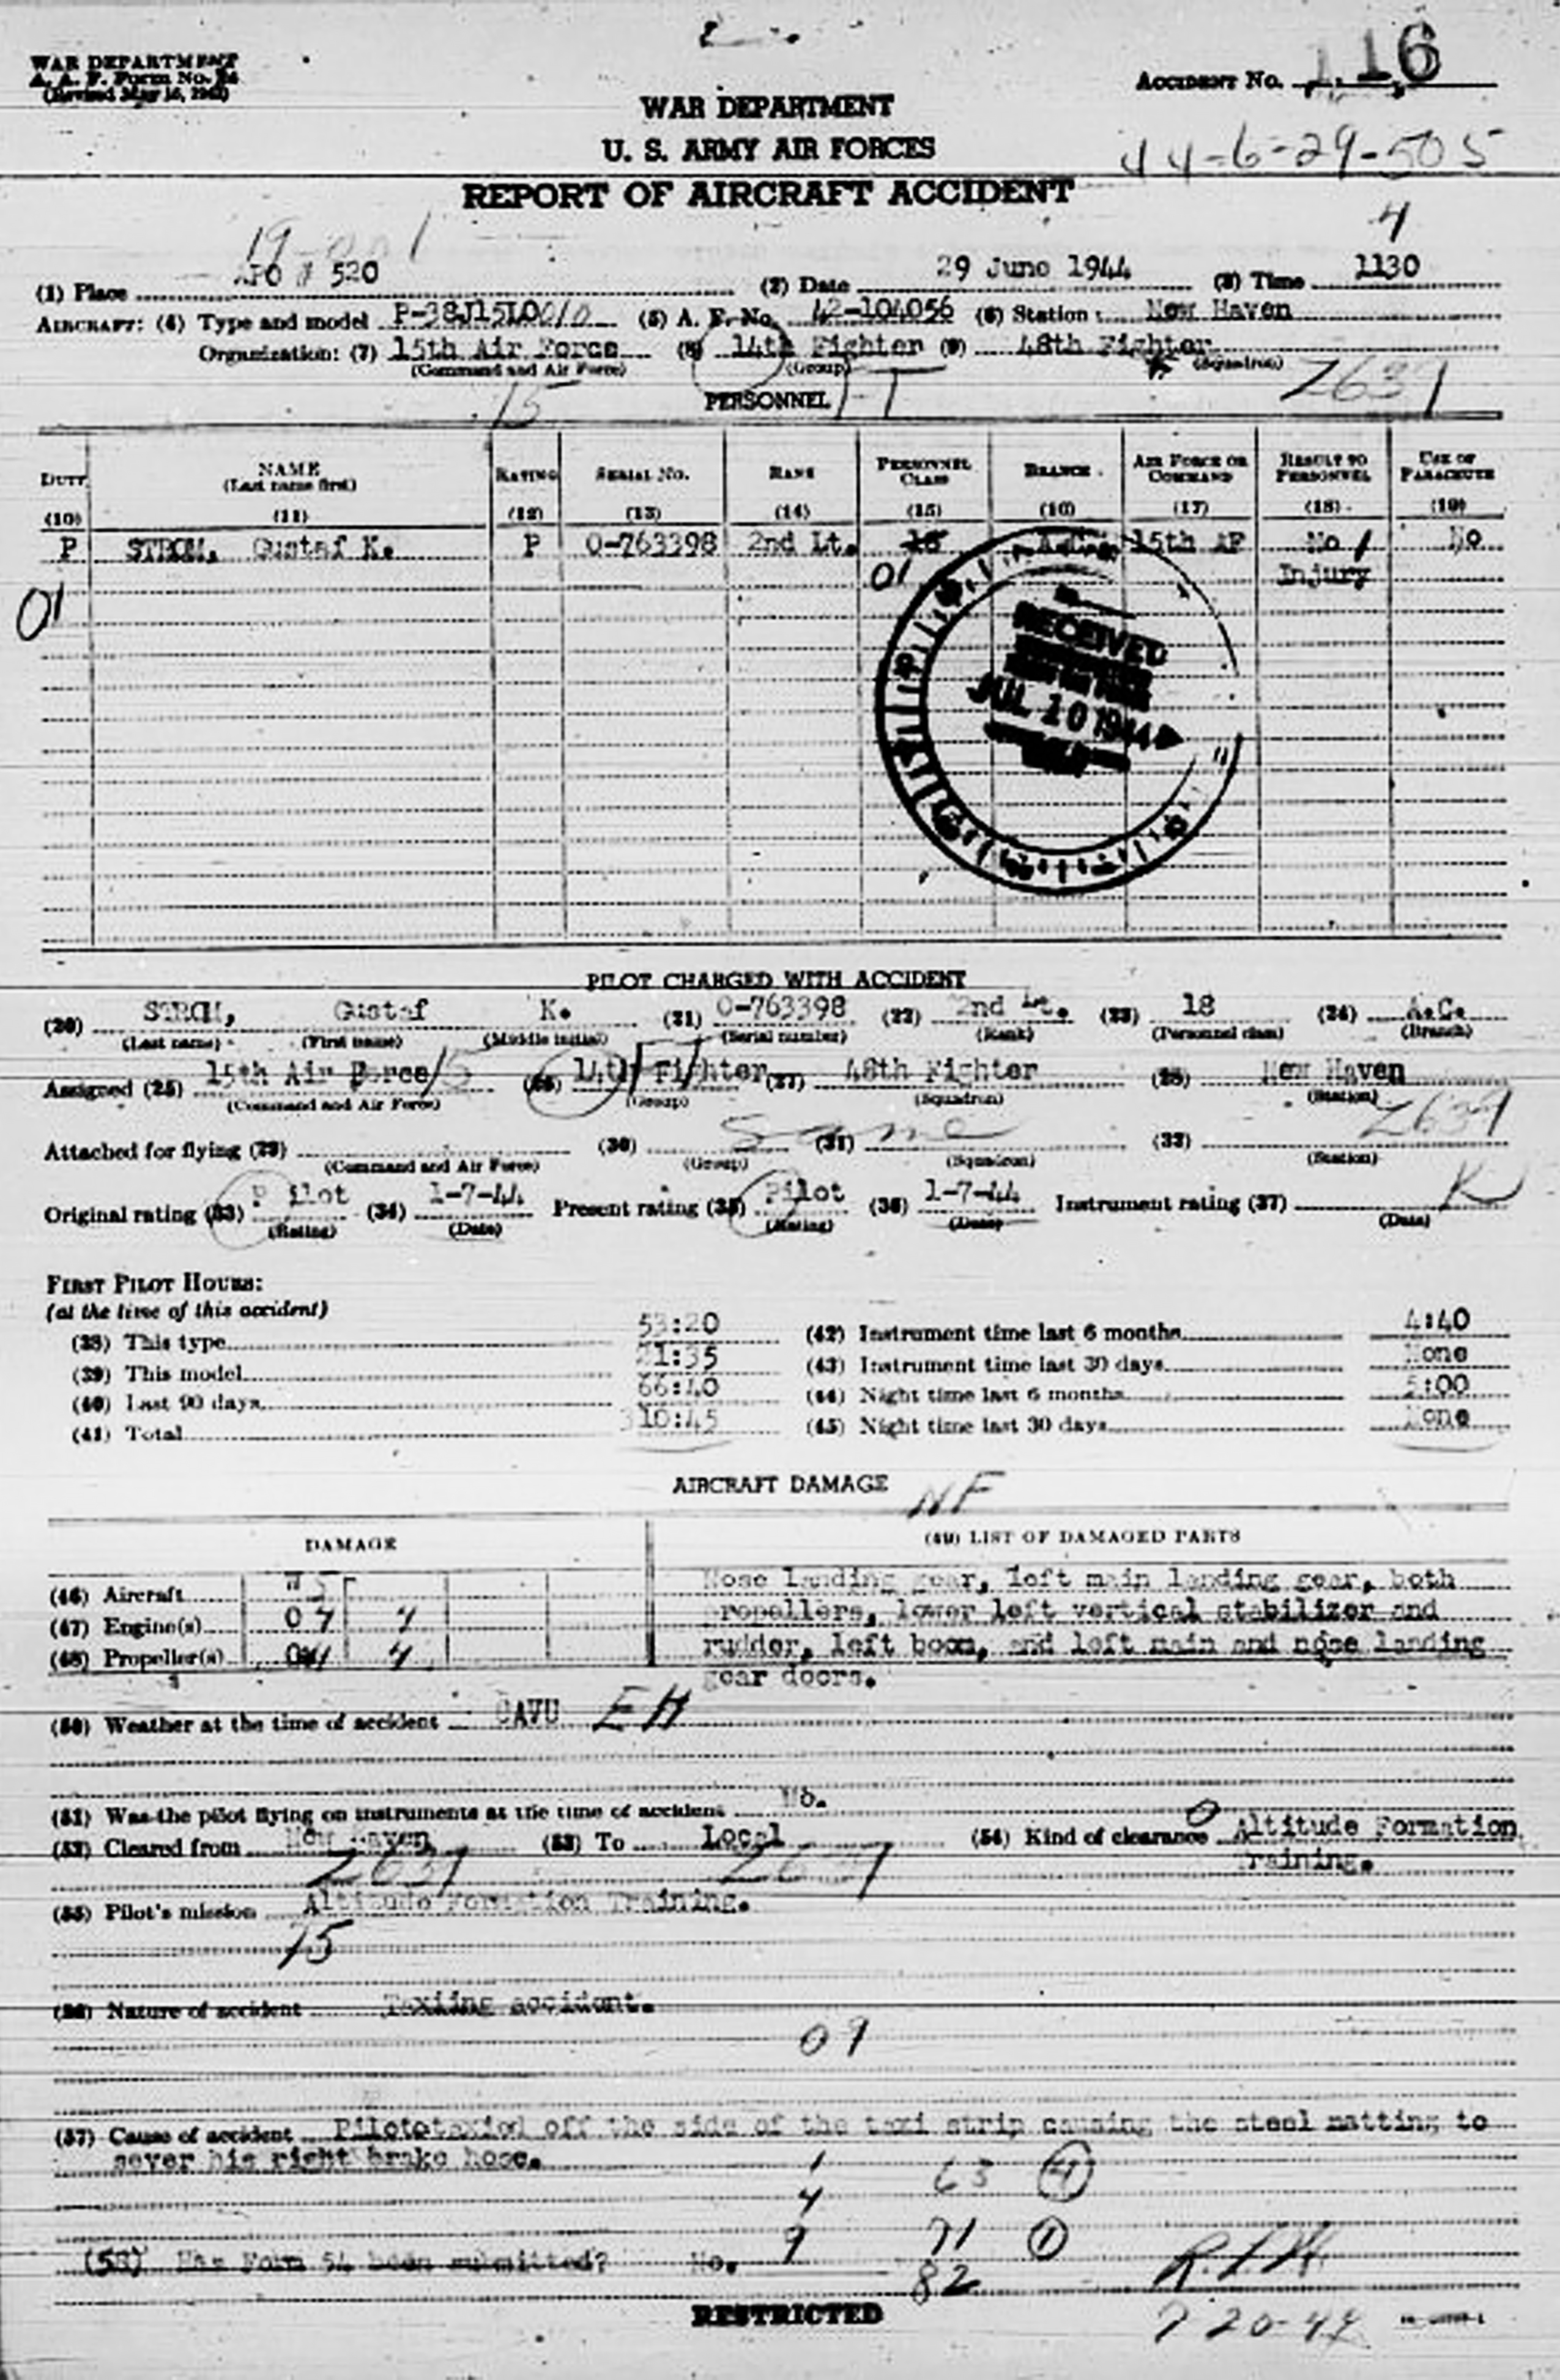 WAR DEPARTMENT
A. A. F. Form No.
(Revised May 15, 1942)
ACCIDENT No. 116
WAR DEPARTMENT
U. S. ARMY AIR FORCES
44-6-29-505
REPORT OF AIRCRAFT ACCIDENT
4
(1) Place APO # 520 (2) Date 29 June 1944 (3) Time 1130
AIRCRAFT: (4) Type and model P-38J15LO (5) A. F. No. 42-104056 (6) Station New Haven
Organization: (7) 15th Air Force (8) 14th Fighter (9) 48th Fighter
(Command and Air Force) (Group) (Squadron)
15 PERSONNEL
DUTY NAME (Last name first) RATING SERIAL No. RANK PERSONNEL CLASS BRANCH AIR FORCE OR COMMAND RESULT TO PERSONNEL USE OF PARACHUTE
(10) (11) (12) (13) (14) (15) (16) (17) (18) (19)
P STROM, Gustaf K. P O-763398 2nd Lt. 18 A.C. 15th AF No Injury No
01 01
RECEIVED
JUL 10 1944
PILOT CHARGED WITH ACCIDENT
(20) STROM, Gustaf K. (21) O-763398 (22) 2nd Lt. (23) 18 (24) A.C.
(Last name) (First name) (Middle initial) (Serial number) (Rank) (Personnel class) (Branch)
Assigned (25) 15th Air Force (26) 14th Fighter (27) 48th Fighter (28) New Haven
(Command and Air Force) (Group) (Squadron) (Station)
Attached for flying (29) (30) Same (31) (32)
(Command and Air Force) (Group) (Squadron) (Station)
Original rating (33) Pilot (34) 1-7-44 Present rating (35) Pilot (36) 1-7-44 Instrument rating (37)
(Rating) (Date) (Rating) (Date) (Date)
FIRST PILOT HOURS:
(at the time of this accident)
(38) This type 53:20 (42) Instrument time last 6 months 4:40
(39) This model 21:35 (43) Instrument time last 30 days None
(40) Last 90 days 66:40 (44) Night time last 6 months 5:00
(41) Total 310:45 (45) Night time last 30 days None
AIRCRAFT DAMAGE NF
DAMAGE (49) LIST OF DAMAGED PARTS
(46) Aircraft Nose landing gear, left main landing gear, both
(47) Engine(s) 04 4 propellers, lower left vertical stabilizer and
(48) Propeller(s) 4 rudder, left boom, and left main and nose landing
gear doors.
(50) Weather at the time of accident CAVU EH
(51) Was the pilot flying on instruments at the time of accident No.
(52) Cleared from New Haven (53) To Local (54) Kind of clearance Altitude Formation
Training.
(55) Pilot's mission Altitude Formation Training.
15
(56) Nature of accident Taxiing accident.
09
(57) Cause of accident Pilot taxied off the side of the taxi strip causing the steel matting to
sever his right brake hose. 1
4 63 4
9 71 1
(58) Has Form 54 been submitted? No.
82
RESTRICTED
7-20-44